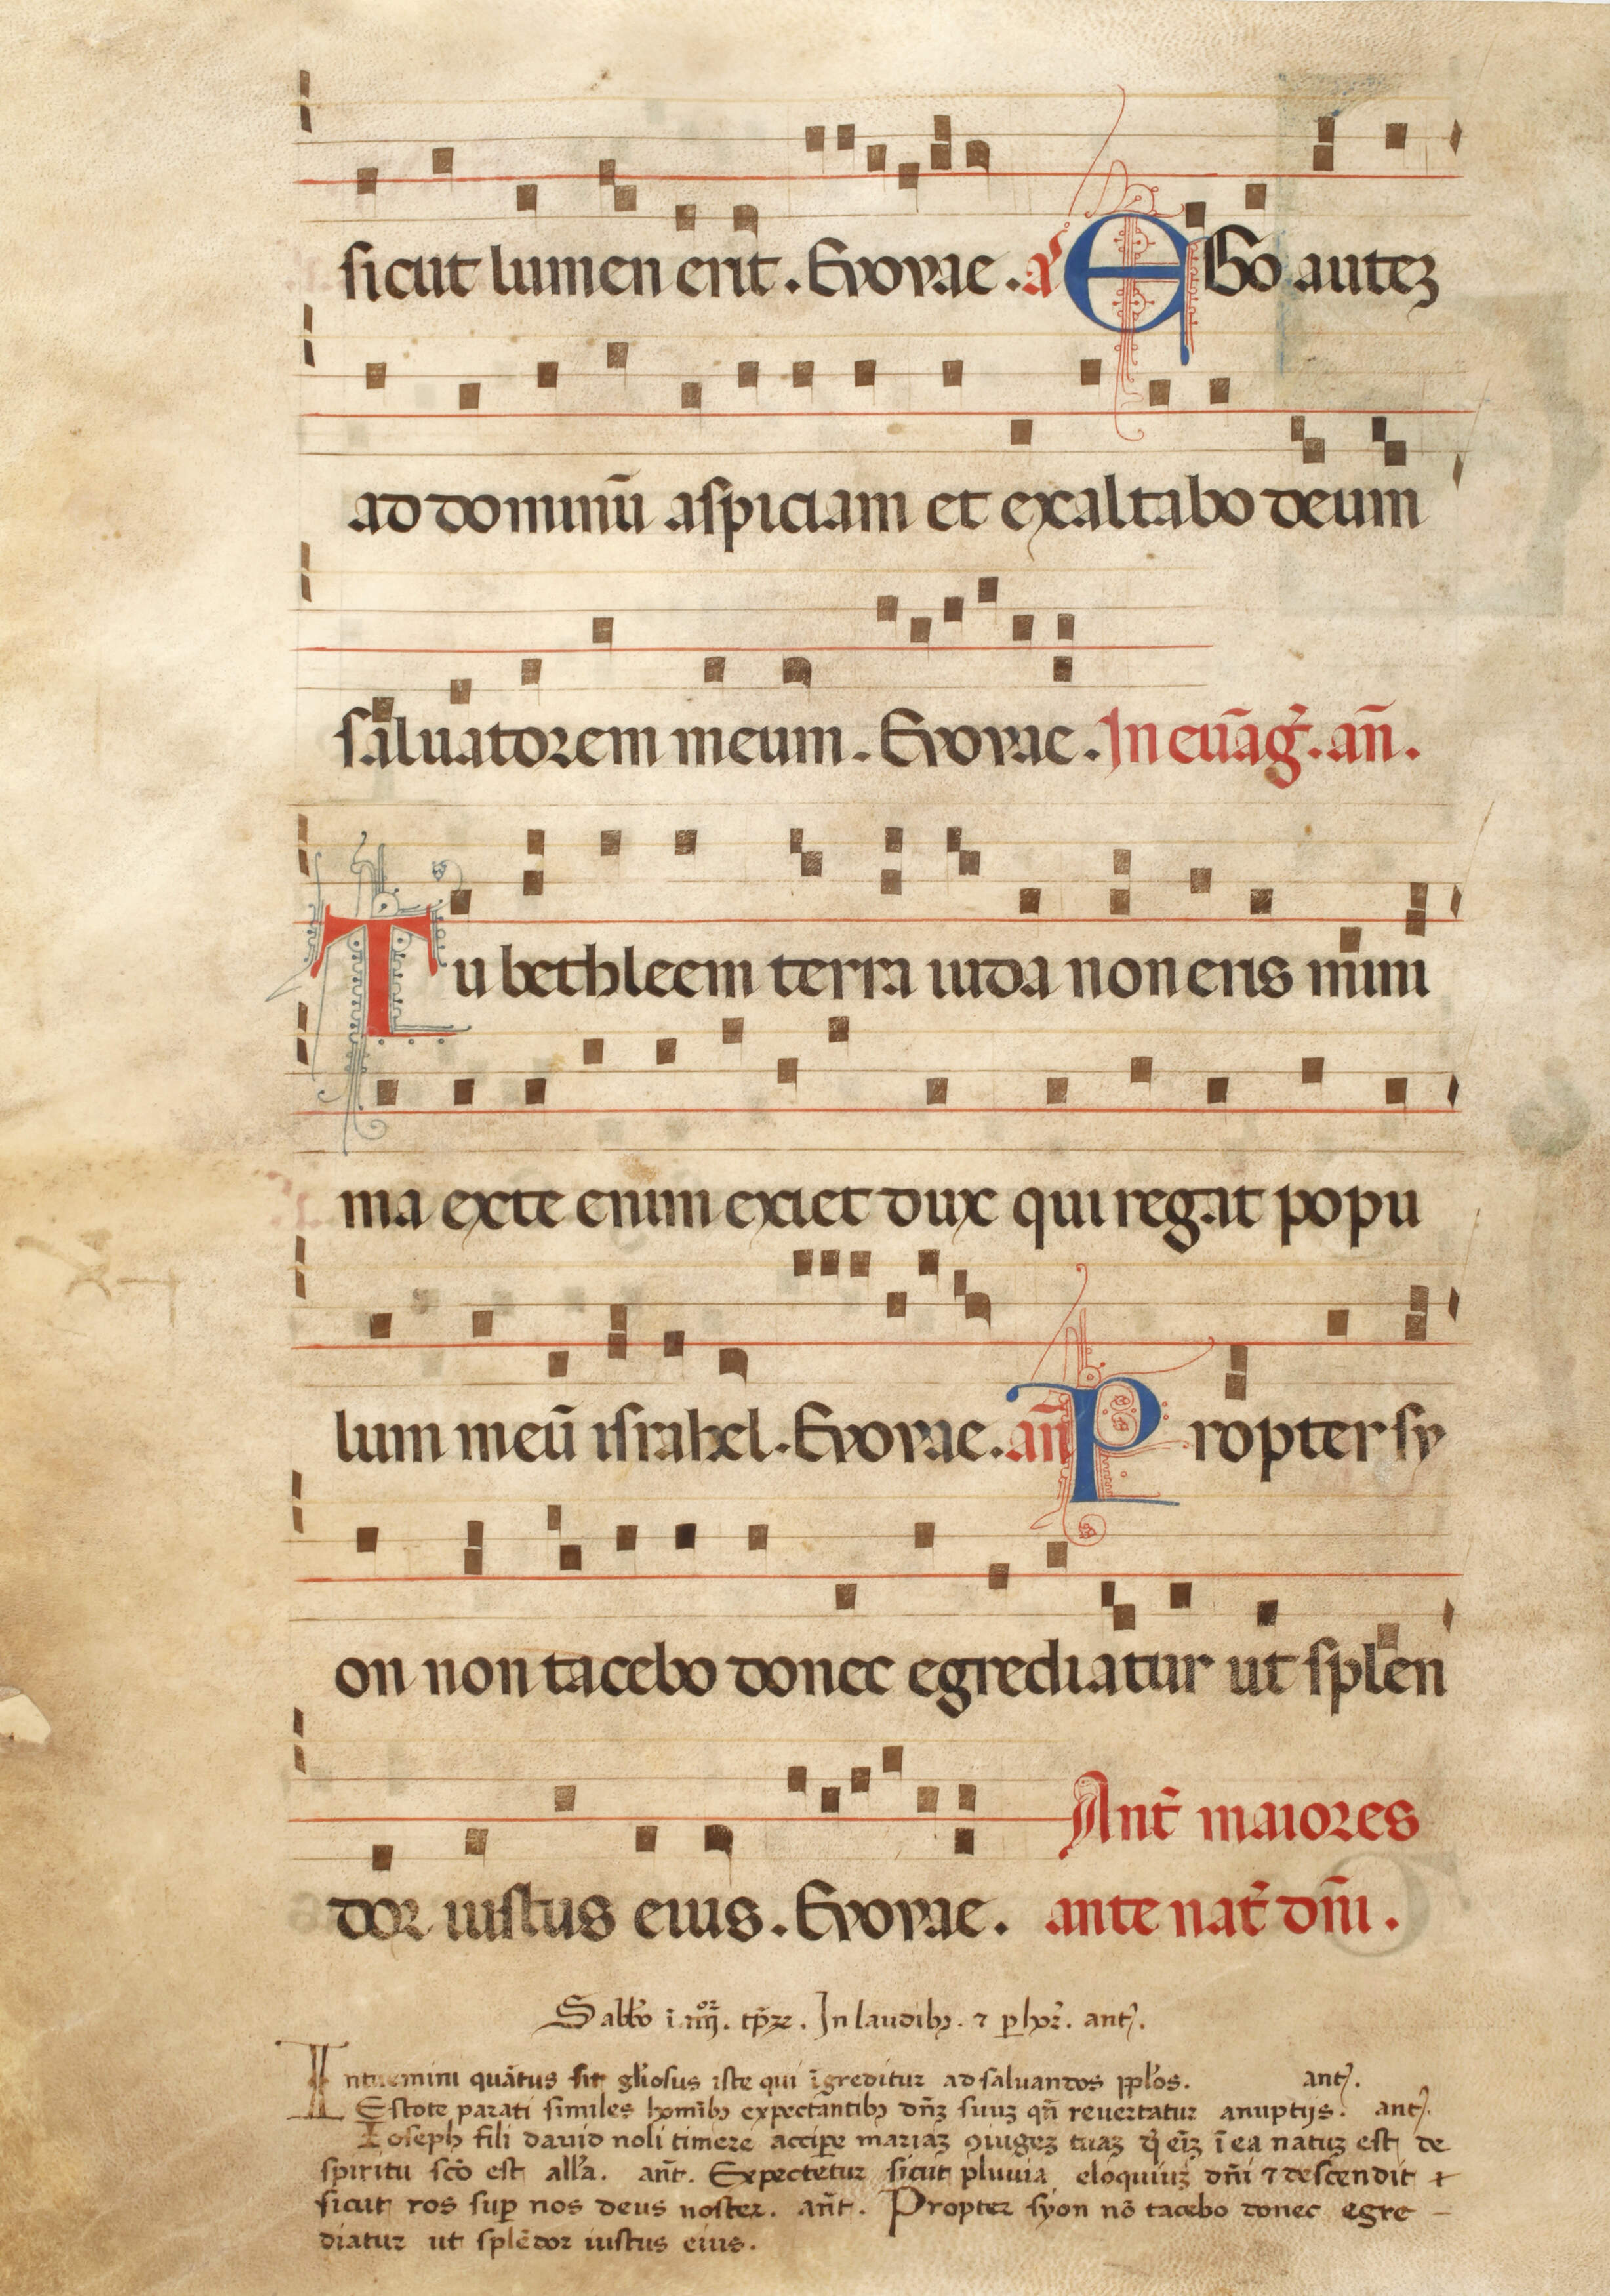 sicut lumen erit. Evovae. a͞ EGo auteꝫ
ad dominū aspiciam et exaltabo deum
saluatorem meum. Evovae. In eūag̃. an̄.
Tu bethleem terra iuda non eris mini
ma ex te enim exiet dux qui regat popu
lum meū israhel. Evovae. an̄ Propter sy
on non tacebo donec egrediatur ut splen
dor iustus eius. Evovae. Ant̃ maiores
ante nat̃ dn̄i.
Sabbo In laudibꝫ. ⁊ ꝑ hoꝝ. ant̃.
Intuemini quātus sit gl̄iosus iste qui īgreditur ad saluandos ppl̄os. ant̃.
Estote parati similes homībꝫ expectantibꝫ dn̄ꝫ suuꝫ qn̄ reuertatur a nuptijs. ant̃.
Ioseph fili dauid noli timere acciꝑe mariaꝫ ꝯiugeꝫ tuaꝫ qͥ eīꝫ ī ea natuꝫ est de
spiritu sc̄o est all̄a. an̄t. Expectetur sicut pluuia eloquiuꝫ dn̄i ⁊ descendit ⁊
sicut ros suꝑ nos deus noster. an̄t. Propter syon nō tacebo donec egre-
diatur ut splēdor iustus eius.